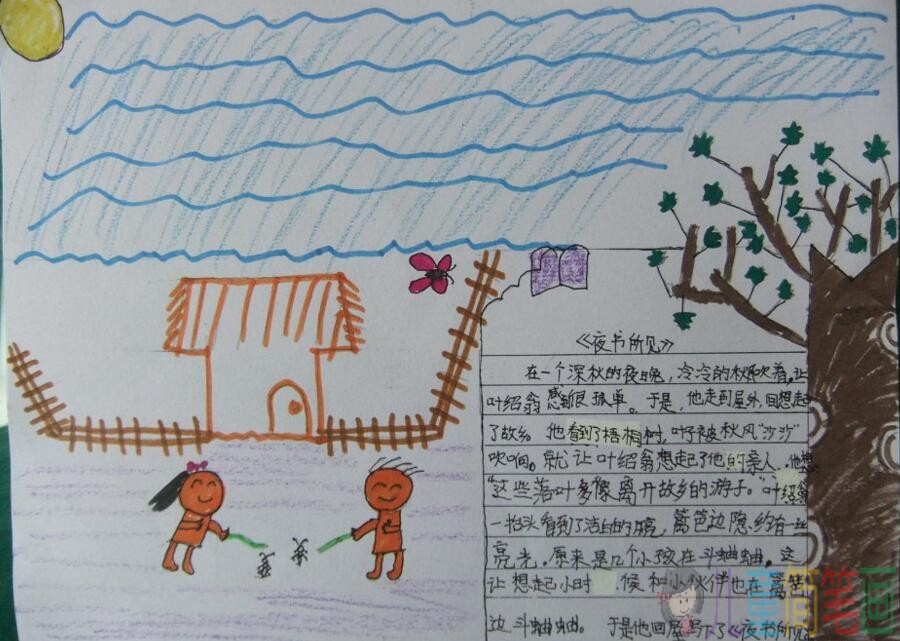 《夜书所见》
在一个深秋的夜晚，冷冷的秋风吹着。让
叶绍翁感到很孤单。于是，他走到屋外，回想起
了故乡。他看到了梧桐树，叶子被秋风"沙沙"
吹响。就让叶绍翁想起了他的亲人，他想
"这些落叶多像离开故乡的游子。"叶绍翁
一抬头看到了 篱笆边隐约有一丝
亮光。原来是几个小孩在斗蛐蛐。这
让想起小时候和小伙伴也在篱笆
边斗蛐蛐。于是他回屋写下了《夜书所见》
儿童简笔画